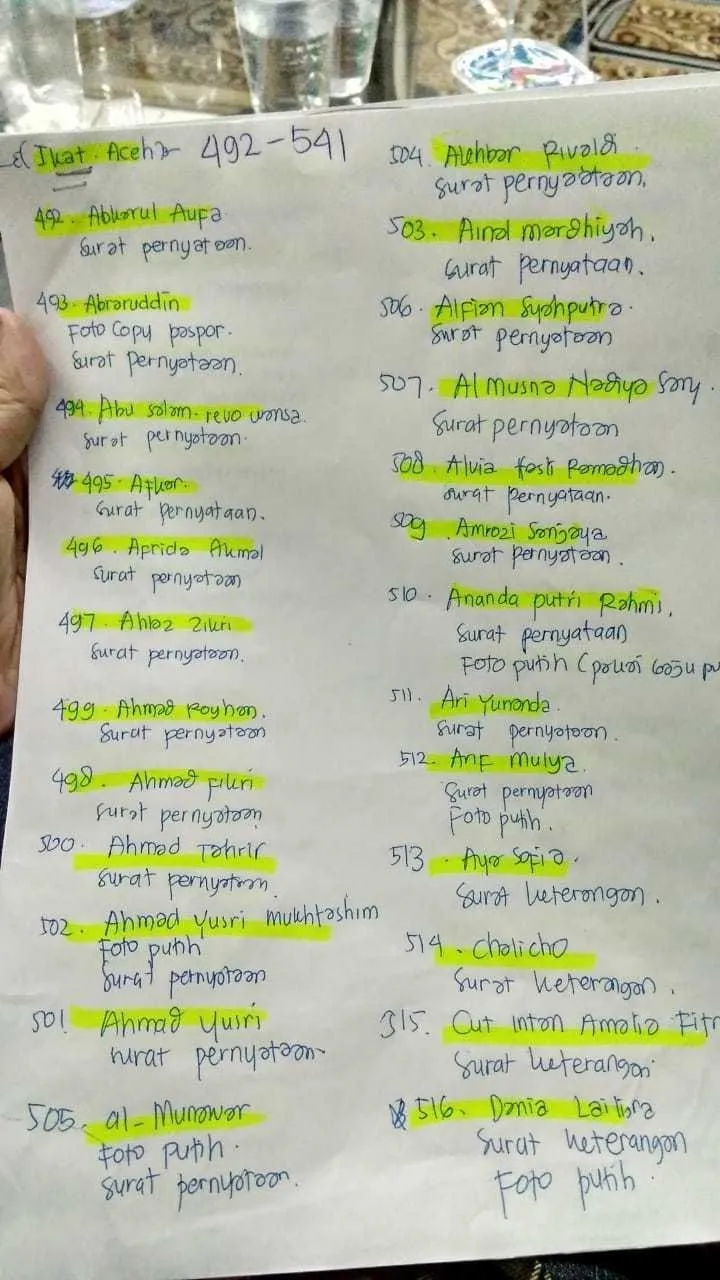 Ikat Aceh 492-541
492. Abkarul Aufa
Surat pernyataan.
493. Abraruddin
Foto Copy paspor.
Surat Pernyataan.
494. Abu salam revo wansa.
surat pernyataan.
495. Afkar.
Surat Pernyataan.
496. Aprida Akmal
Surat pernyataan
497. Ahlaz Zikri
Surat pernyataan.
499. Ahmad Royhan.
Surat pernyataan
498. Ahmad Fikri
Surat pernyataan
500. Ahmad Tahrir
Surat pernyataan
502. Ahmad Yusri Mukhtashim
Foto putih
Surat pernyataan
501. Ahmad Yusri
surat pernyataan
505. al-Munawar
Foto putih.
Surat pernyataan.
504. Akhbar Rivaldi.
Surat pernyataan.
503. Ainal mardhiyah.
Surat Pernyataan.
506. Alfian Syahputra.
Surat pernyataan
507. Al Musna Nadiya Sary.
Surat pernyataan
508. Alvia Ramadhan.
Surat pernyataan.
509. Amrozi Sanjaya
Surat pernyataan.
510. Ananda putri Rahmi.
Surat pernyataan
Foto putih (pakai baju pu
511. Ari Yunanda.
Surat pernyataan.
512. Arif Mulya.
Surat pernyataan
Foto putih.
513. Aya Sofia.
Surat keterangan.
514. Cholicho
Surat keterangan.
315. Cut Intan Amalia Fitr
Surat keterangan.
516. Dania
Surat keterangan
Foto putih.